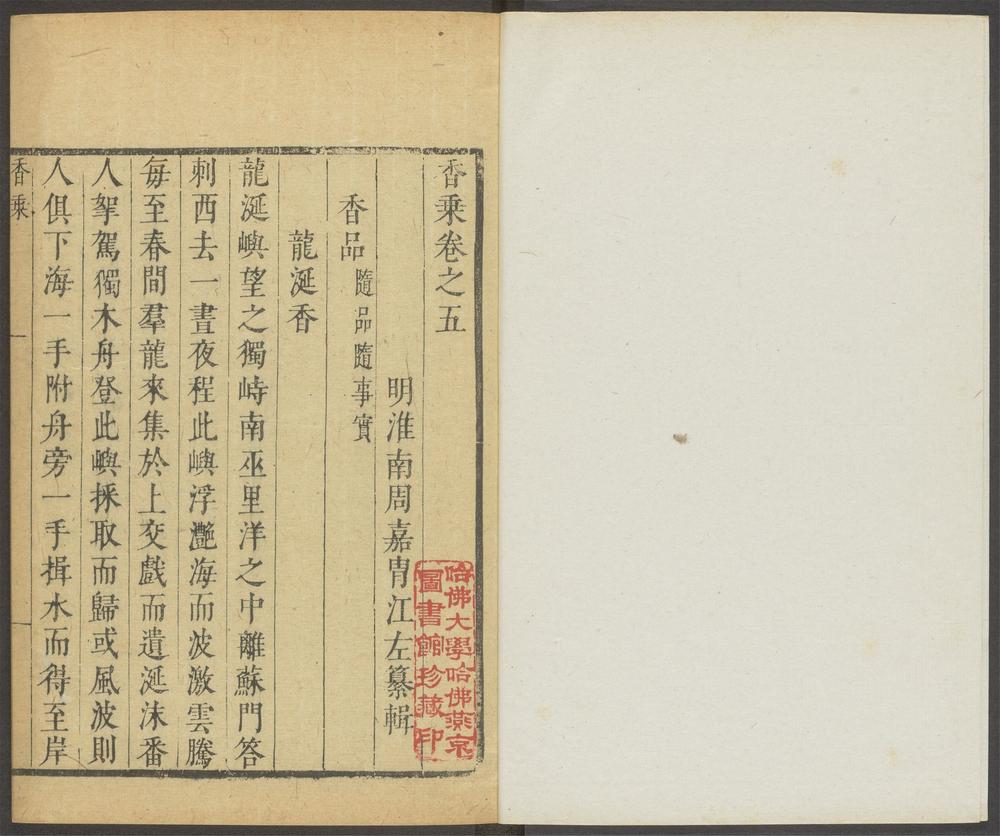 香乘卷之五
明淮南周嘉胄江左纂輯
香品隨品隨事實
龍涎香
龍涎嶼望之獨峙南巫里洋之中離蘇門答
刺西去一晝夜程此嶼浮灔海而波激雲騰
每至春間羣龍來集於上交戲而遺涎沫番
人挐駕獨木舟登此嶼採取而歸或風波則
人俱下海一手附舟旁一手揖水而得至岸
香乘
哈佛大學哈佛燕京
圖書館珍藏印